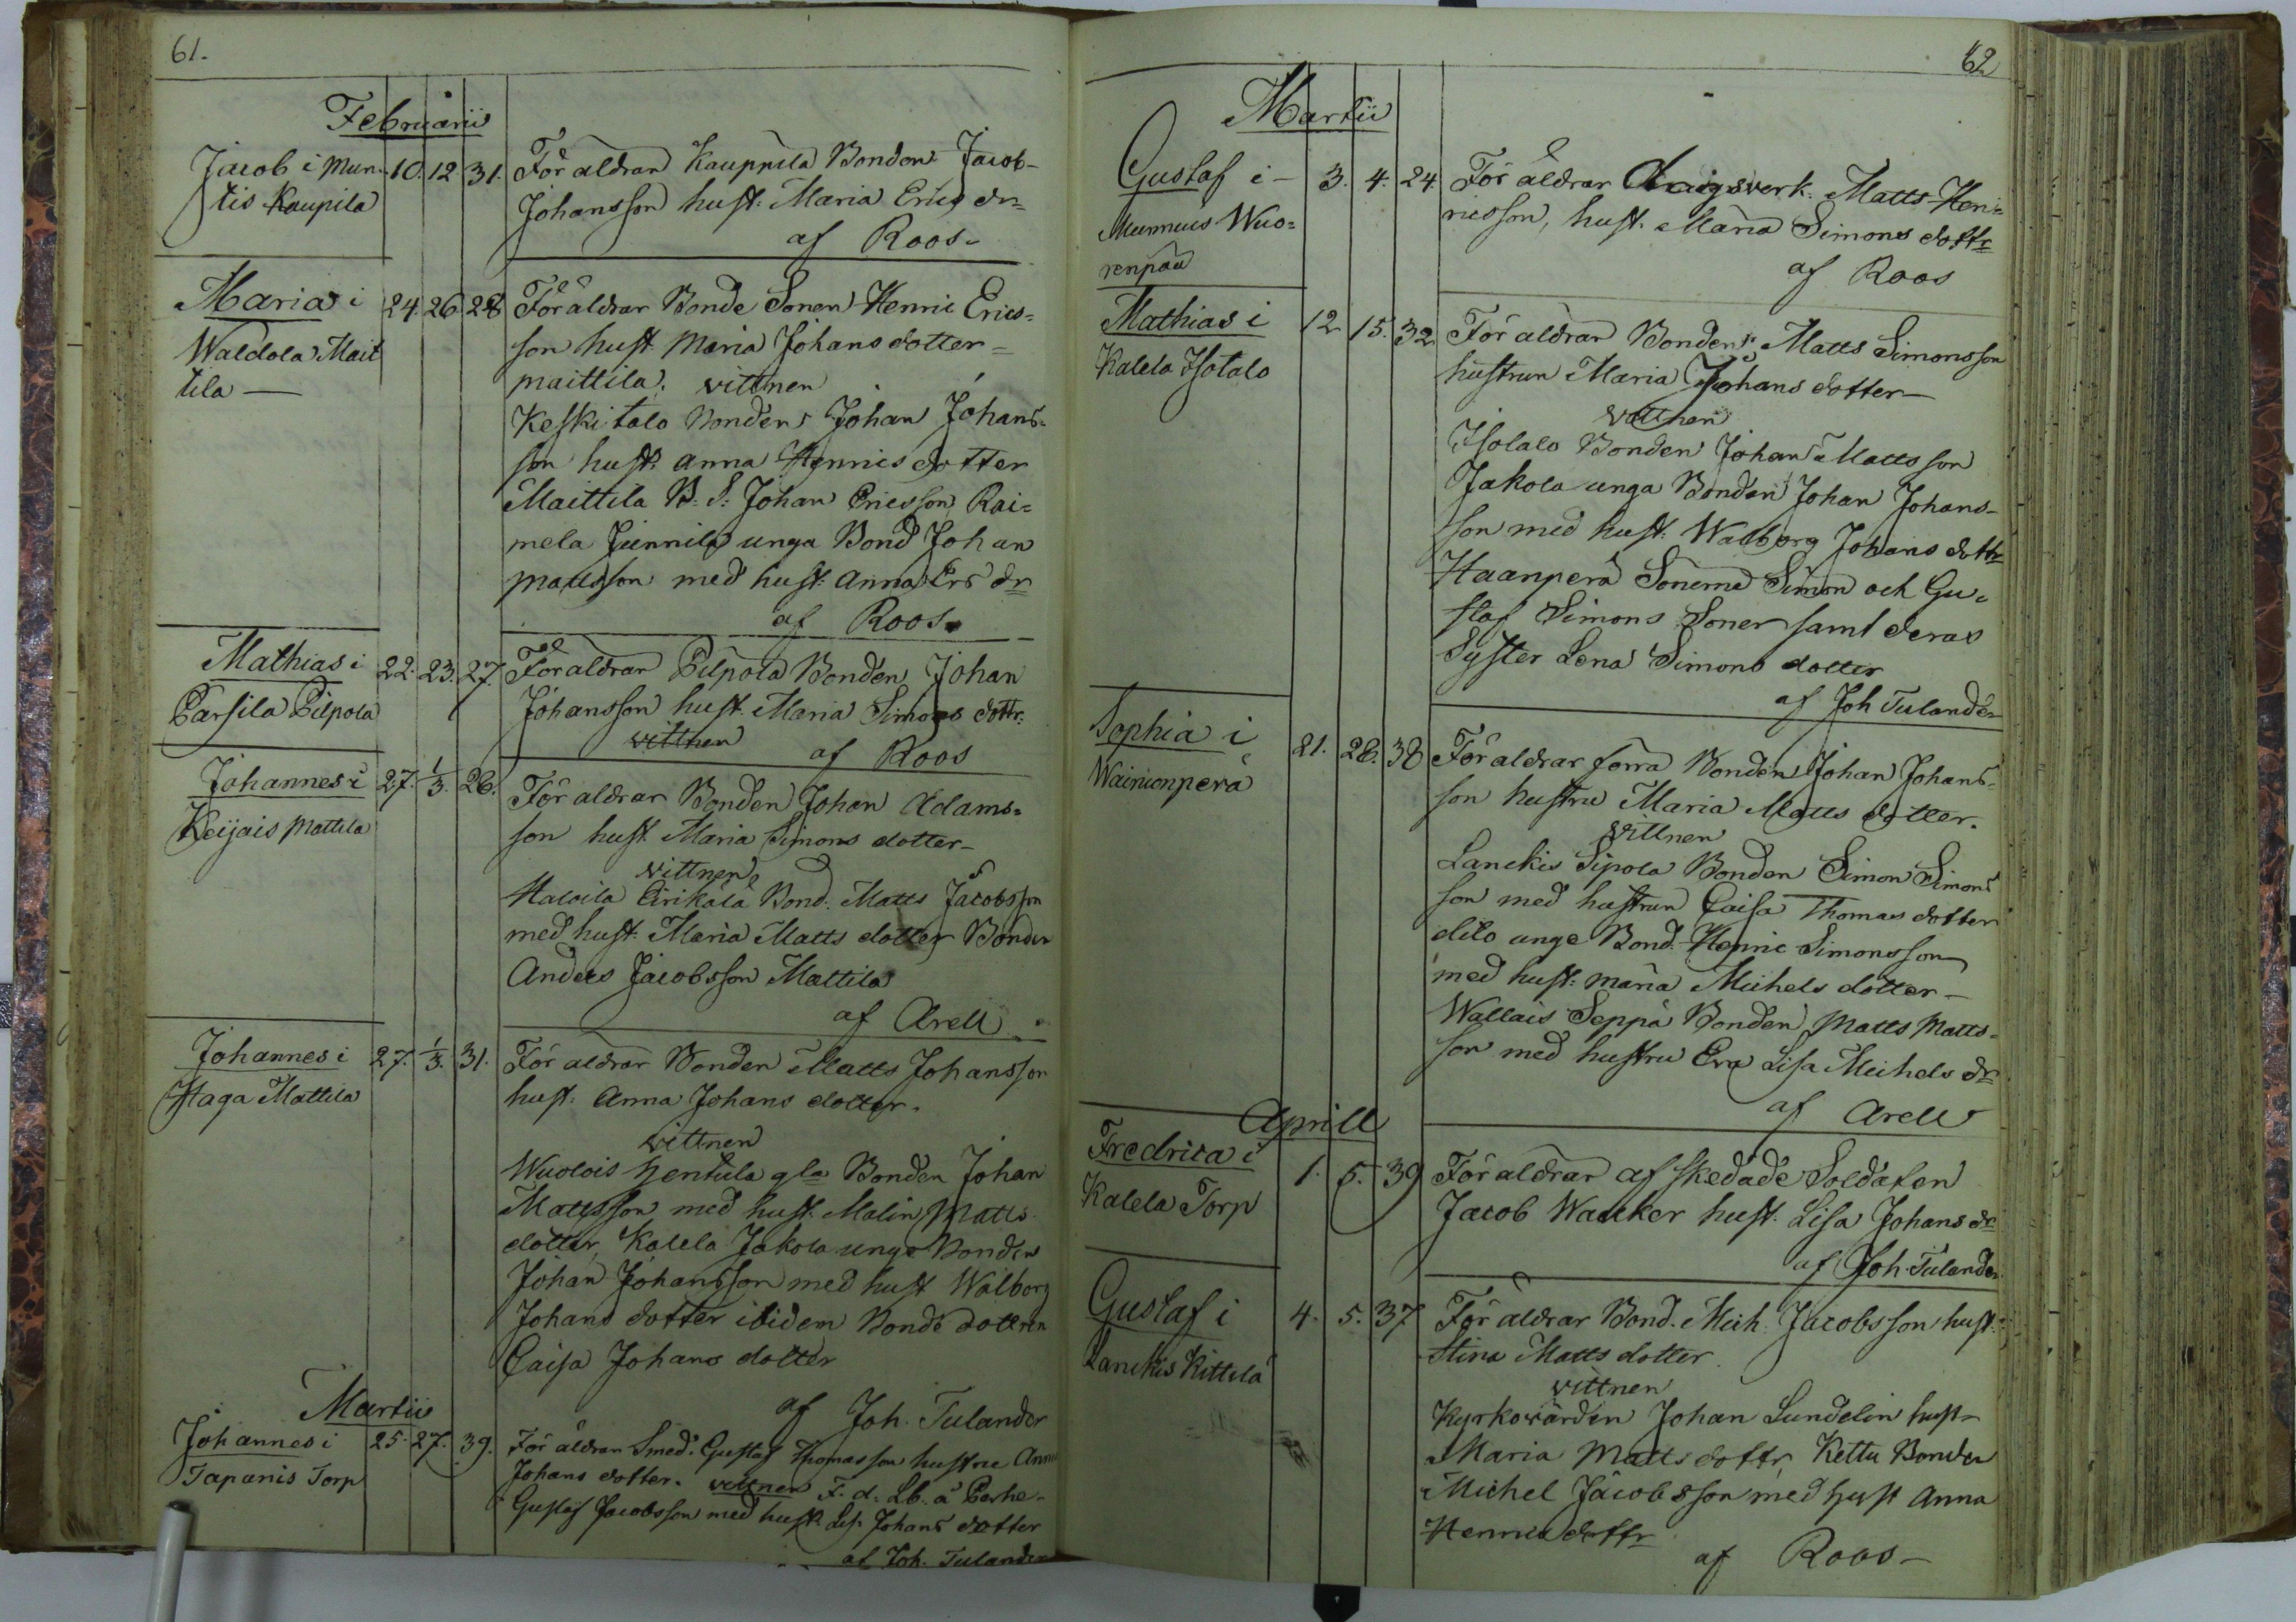 61.
Februarii
Jacob i Mun- 10. 12 31. Föräldrar Kauppila Bonden Jacob
tis Kaupila Johansson hust. Maria Erics dr
af Roos
Maria i 24. 26 28 Föräldrar Bonde Sonen Henric Erics=
Waldola Mait son hust. Maria Johans dotter
tila — maittila. vittnen
Keskitalo Bonden Johan Johans=
son hust. Anna Henrics dotter
Maittila B. S. Johan Ericsson, Rai=
mela Junnila unga Bond Johan
Mattsson med hust. Anna Ers dr
af Roos.
Mathias i 22. 23. 27. Föräldrar Pilpola Bonden Johan
Parsila Pilpola Johansson hust. Maria Simons dottr.
vittnen af Roos
Johannes i 27. 1/3. 26. Föräldrar Bonden Johan Adams=
Keijais Mattila son hust. Maria Simons dotter
vittnen
Haloila Eirikälä Bond. Matts Jacobsson
med hust. Maria Matts dotter Bonden
Anders Jacobsson Mattila
af Arell
Johannes i 27. 1/3. 31. Föräldrar Bonden Matts Johansson
Haga Mattila hust. Anna Johans dotter.
vittnen
Wuolois Hentula gla Bonden Johan
Mattsson med hust. Malin Matts
dotter, Kalela Jakola unge Bonden
Johan Johansson med hust Walborg
Johans dotter ibidem Bonde dottren
Caisa Johans dotter
af Joh. Tulander
Martii
Johannes i 25. 27. 39. Föräldrar Smed. Gustaf Thomasson hustru Anna
Tapanis Torp Johans dotter. vittnen F. d. Lb. å Perhe-
Gustaf Jacobsson med hust. Lis. Johans dotter
af Joh. Tulander
62
Martii
Gustaf i 3. 4. 24 Föräldrar Matts Hen=
Munnus Wuo= ricsson, hust. Maria Simons dottr
renpää af Roos
Mathias i 12. 15. 32 Föräldrar Bonden Matts Simonsson
Kalela Isotalo hustrun Maria Johans dotter
vittnen
Isotalo Bonden Johan Mattsson
Jakola unga Bonden Johan Johans-
son med hust. Walborg Johans dottr
Haanperä Sönerne Simon och Gu=
staf Simons Söner samt deras
Syster Lena Simons dotter
af Joh Tulander
Sophia i 21. 28. 38 Föräldrar förra Bonden Johan Johans-
Wainionperä son hustru Maria Matts dotter.
vittnen
Lanckis Sipola Bonden Simon Simons
son med hustrun Caisa Thomas dotter
dito unge Bond. Henric Simonsson
med hust. Maria Michels dotter
Wallais Seppä Bonden Matts Matts-
son med hustru Eva Lisa Michels dr
af Arell
Aprill
Fredrica i 1. 5. 39 Föräldrar afskedade Soldaten
Kalela Torp Jacob Wacker hust. Lisa Johans dr
af Joh. Tulander
Gustaf i 4. 5. 37 Föräldrar Bond. Mich. Jacobsson hust.
Lanckis Kittilä Stina Matts dotter.
vittnen
Kyrkovärden Johan Lundelin hust
Maria Matts dottr, Kettu Bonden
Michel Jacobsson med hust Anna
Henrics dottr
af Roos